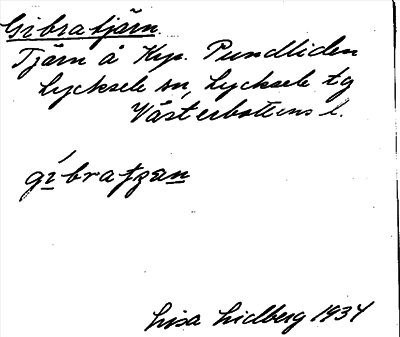 Gibratjärn.
Tjärn å Kp. Pundliden
Lycksele sn, Lycksele tg
Västerbottens l.
gíbratzan
Lisa Lidberg 1934